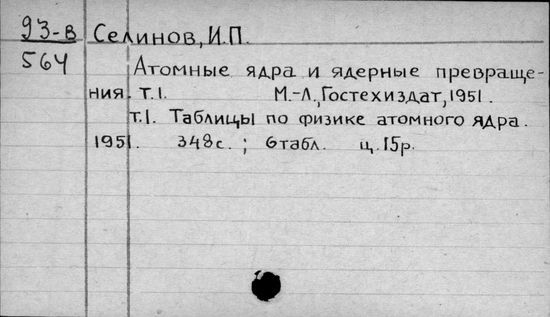 93-в Селинов, И.П.
564
Атомные ядра и ядерные превраще-
ния. т.1. М.-Л., Гостехиздат, 1951.
т.1. Таблицы по физике атомного ядра.
1951. 348с.; 6табл. ц.15р.